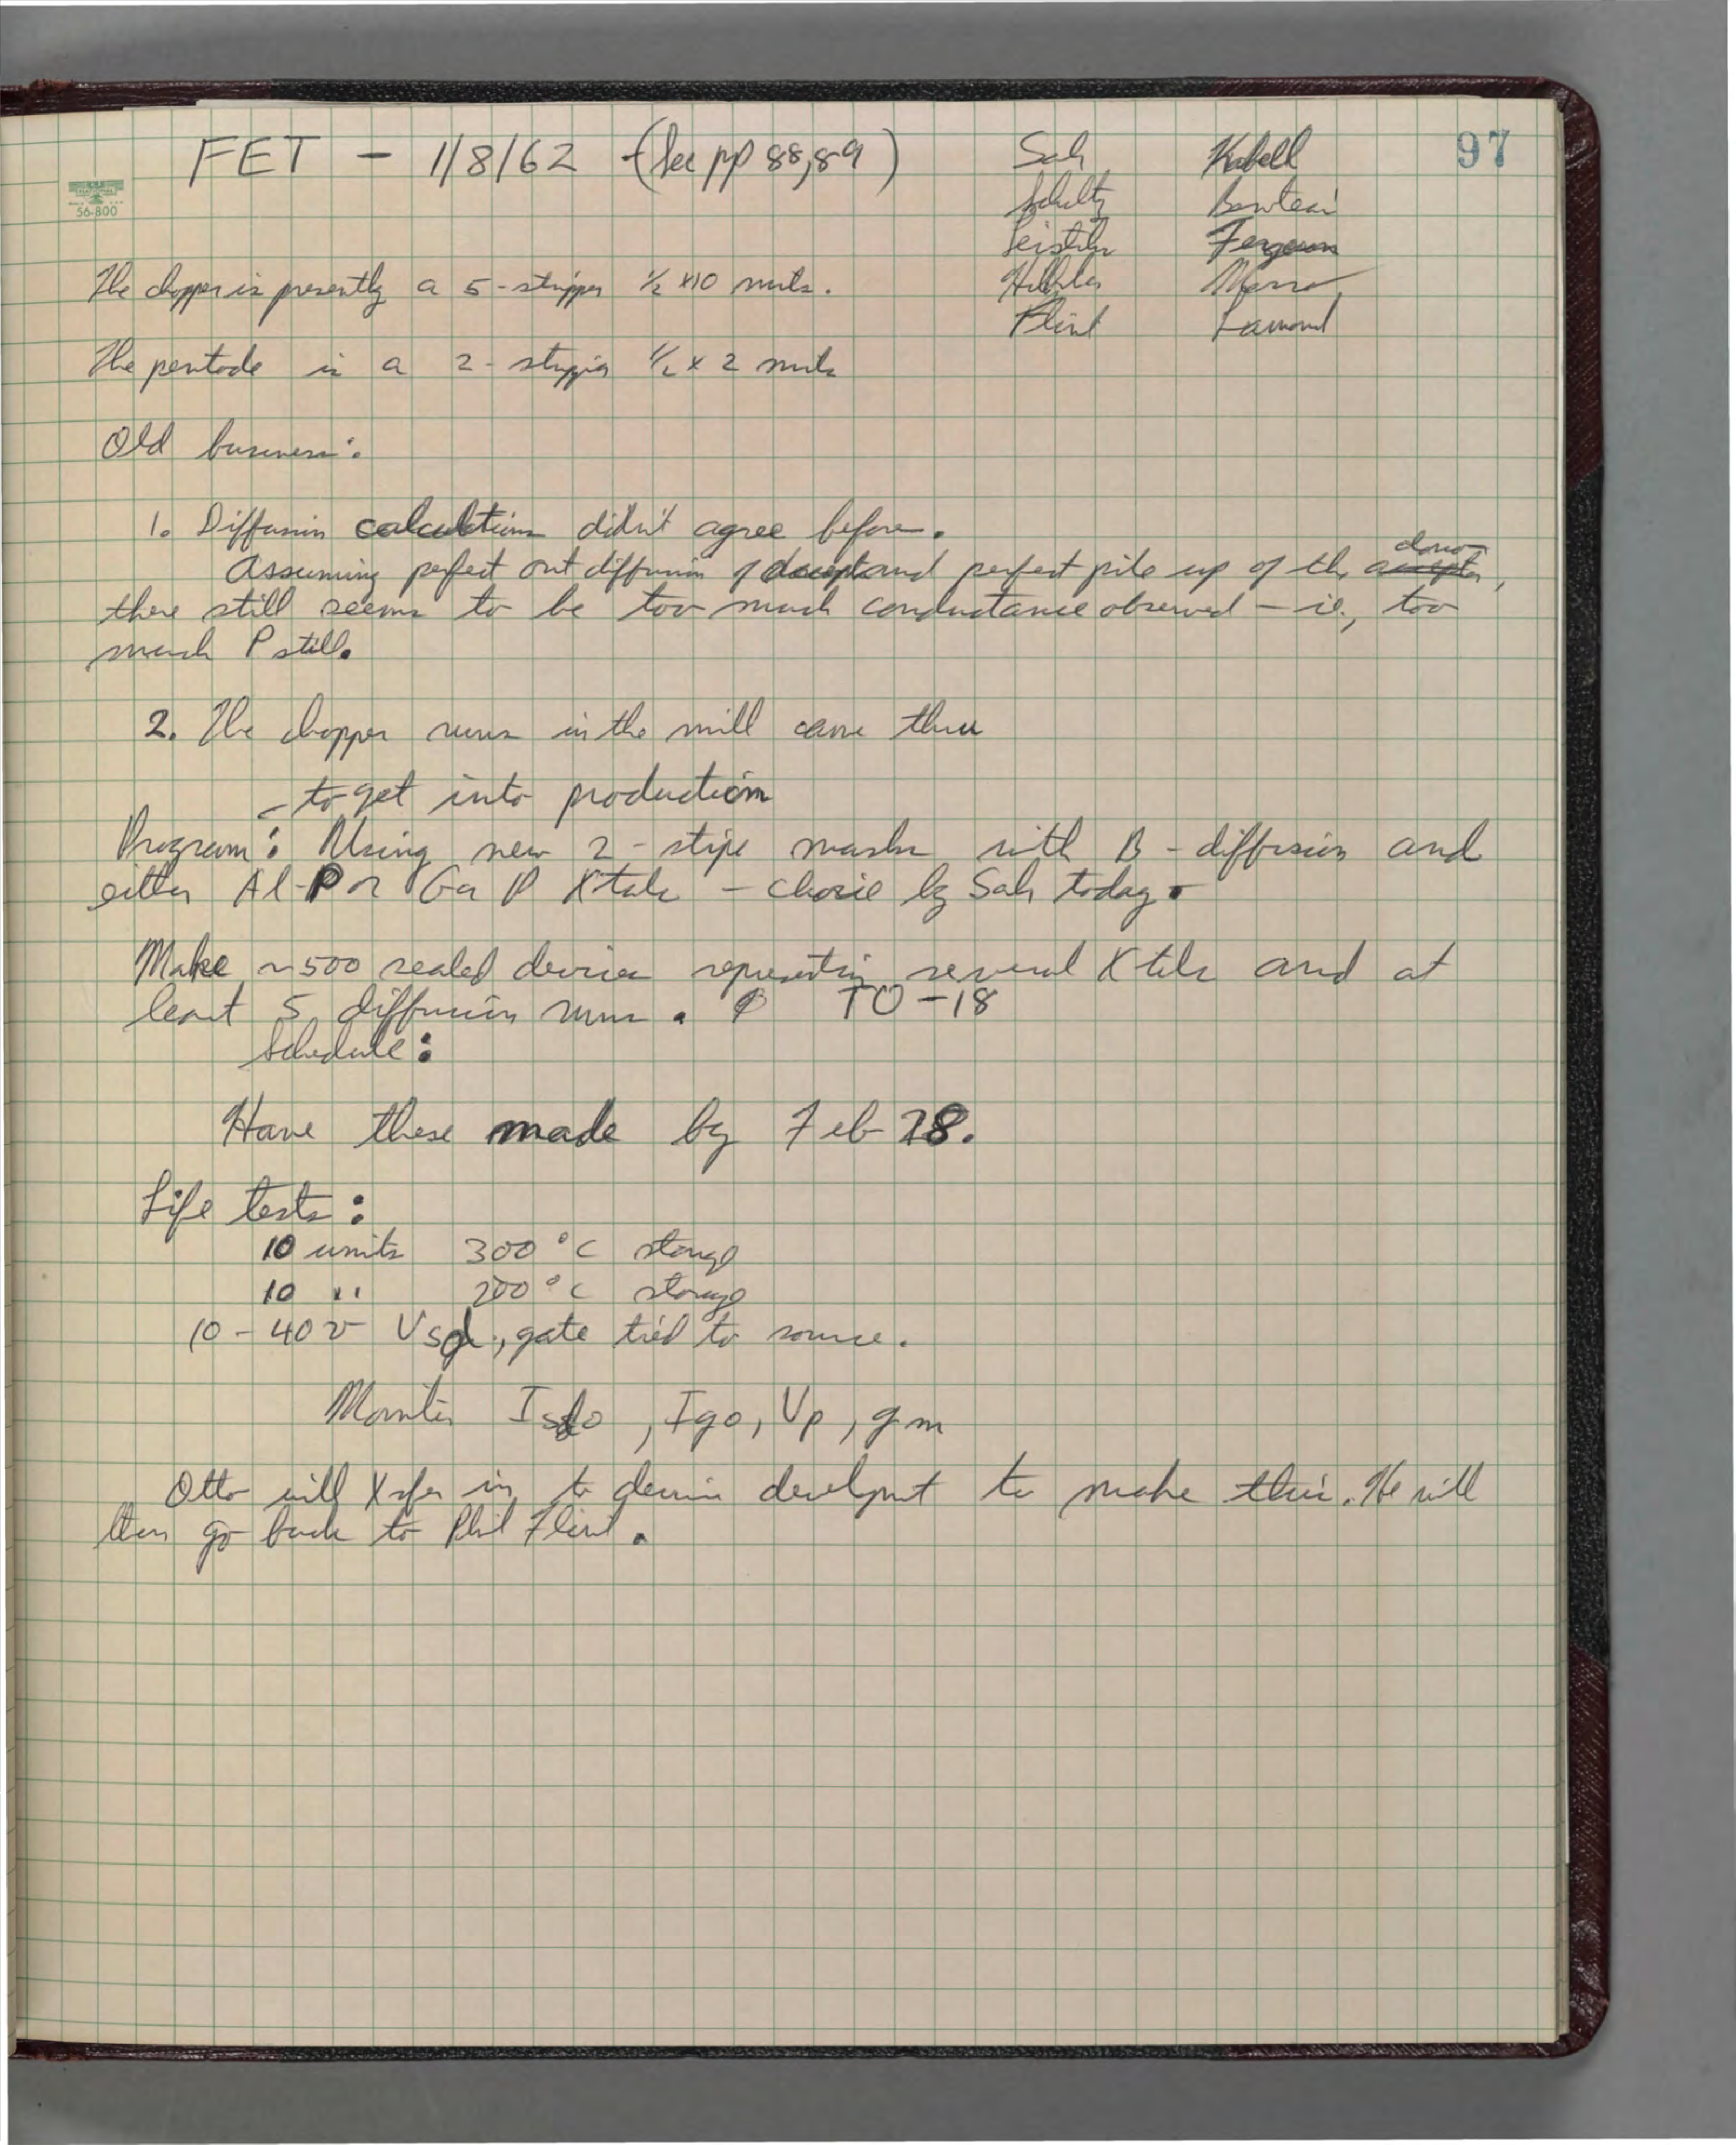 97
FET - 1/8/62 - (See pp 88, 89)
Sah Kabell
Schultz
Leistiko Ferguson
Flint Lamond
56-800
The chopper is presently a 5-stripper 1/2 x 10 mils.
The pentode is a 2-stripper 1/2 x 2 mils
Old business:
1. Diffusion calculations didn't agree before.
Assuming perfect out diffusion of and perfect pile up of the donor acceptor,
there still seems to be too much conductance observed - ie, too
much P still.
2. The chopper runs in the mill came thru
- to get into production
Program: Using new 2-stripe masks with B-diffusion and
either Al-P or Ga P Xtals - choice by Sah today.
Make ~500 sealed devices representing several Xtals and at
least 5 diffusion runs. TO-18
Schedule:
Have these made by Feb 28.
Life tests:
10 units 300°C storage
10 " 200°C storage
10 - 40 v Vsd, gate tied to source.
Monitor Isdo, Igo, Vp, gm
Otto will Xsfer in to device develpmt to make this. He will
then go back to Phil Flint.